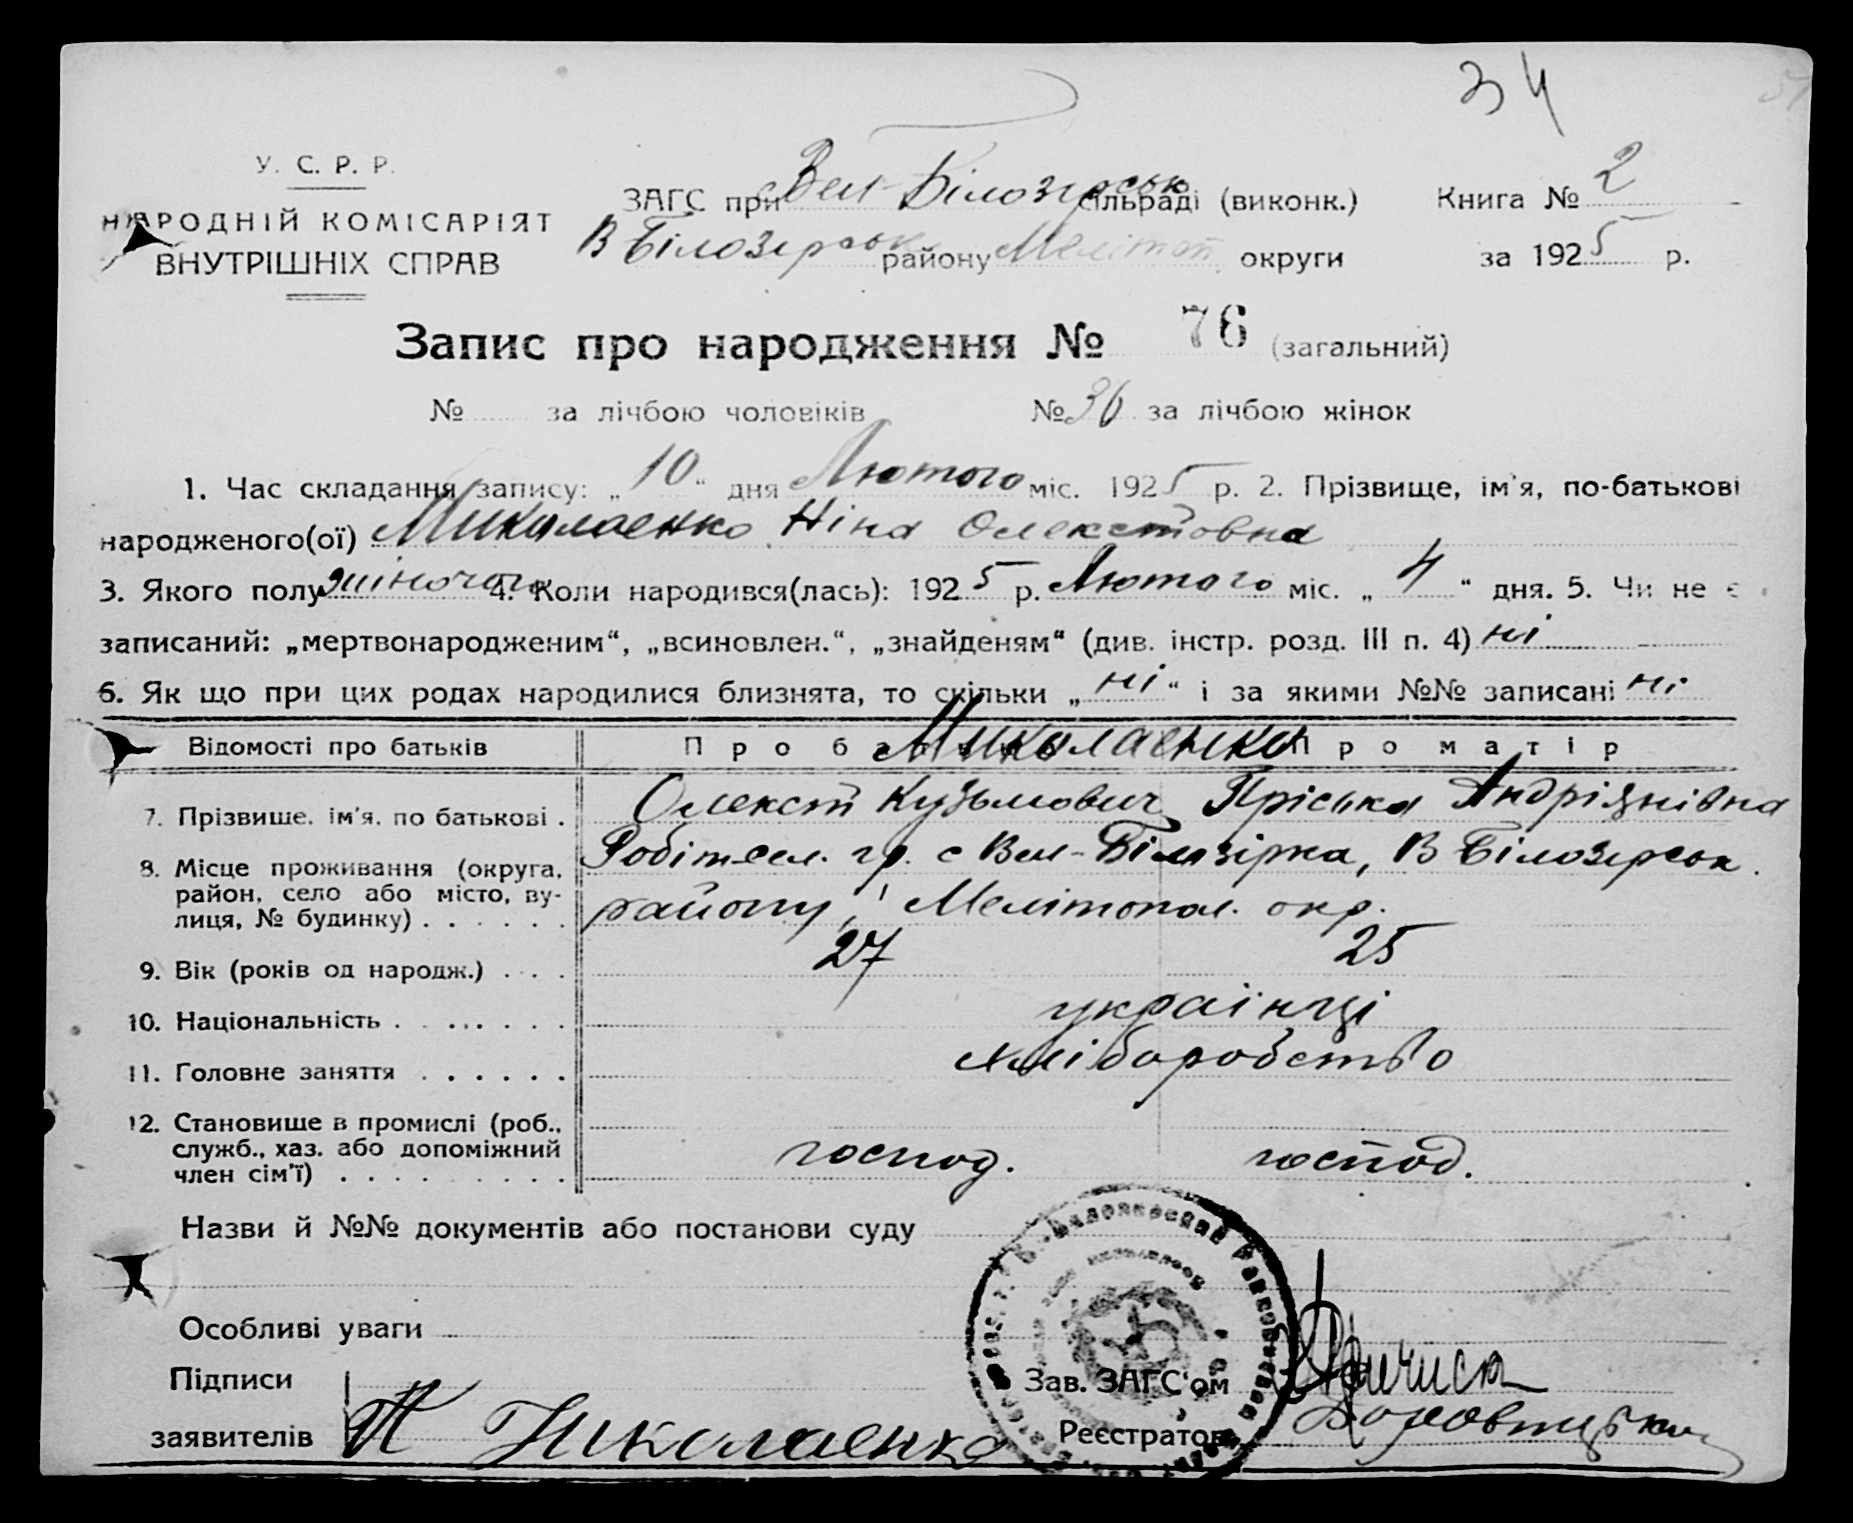 34
У. С. Р. Р.
НАРОДНІЙ КОМІСАРІЯТ
ВНУТРІШНІХ СПРАВ
ЗАГС при Вел-Білозірськ сільраді (виконк.) Книга № 2
В Білозерськ району Меліт округи за 1925 р.
Запис про народження № 76 (загальний)
№ за лічбою чоловіків № 36 за лічбою жінок
1. Час складання запису: „10“ дня Лютого міс. 1925 р. 2. Прізвище, ім'я, по-батькові
народженого(ої) Миколаенко Ніна Олекстовна
3. Якого полу жіночого 4. Коли народився(лась): 1925 р. Лютого міс. „4“ дня. 5. Чи не є
записаний: „мертвонародженим“, „всиновлен.“, „знайденям“ (див. інстр. розд. III п. 4) ні
6. Як що при цих родах народилися близнята, то скільки „ні“ і за якими №№ записані ні
Відомості про батьків Про батька Про матір
Миколаенко
7. Прізвище, ім'я, по батькові . Олекст Кузьмович Пріська Андріянівна
8. Місце проживання (округа, район, село або місто, вулиця, № будинку) . . . . . . Робітсел. гр. с Вел-Білозірка, В Білозерськ
району, Мелітопол. окр.
9. Вік (років од народж.) . . . 27 25
10. Національність . . . . . . . українці
11. Головне заняття . . . . . . хліборобство
12. Становише в промислі (роб., служб., хаз. або допоміжний член сім'ї) . . . . . . . . . господ. господ.
Назви й №№ документів або постанови суду
Особливі уваги
Підписи
заявителів П Николаенко
Зав. ЗАГС'ом
Реєстратор